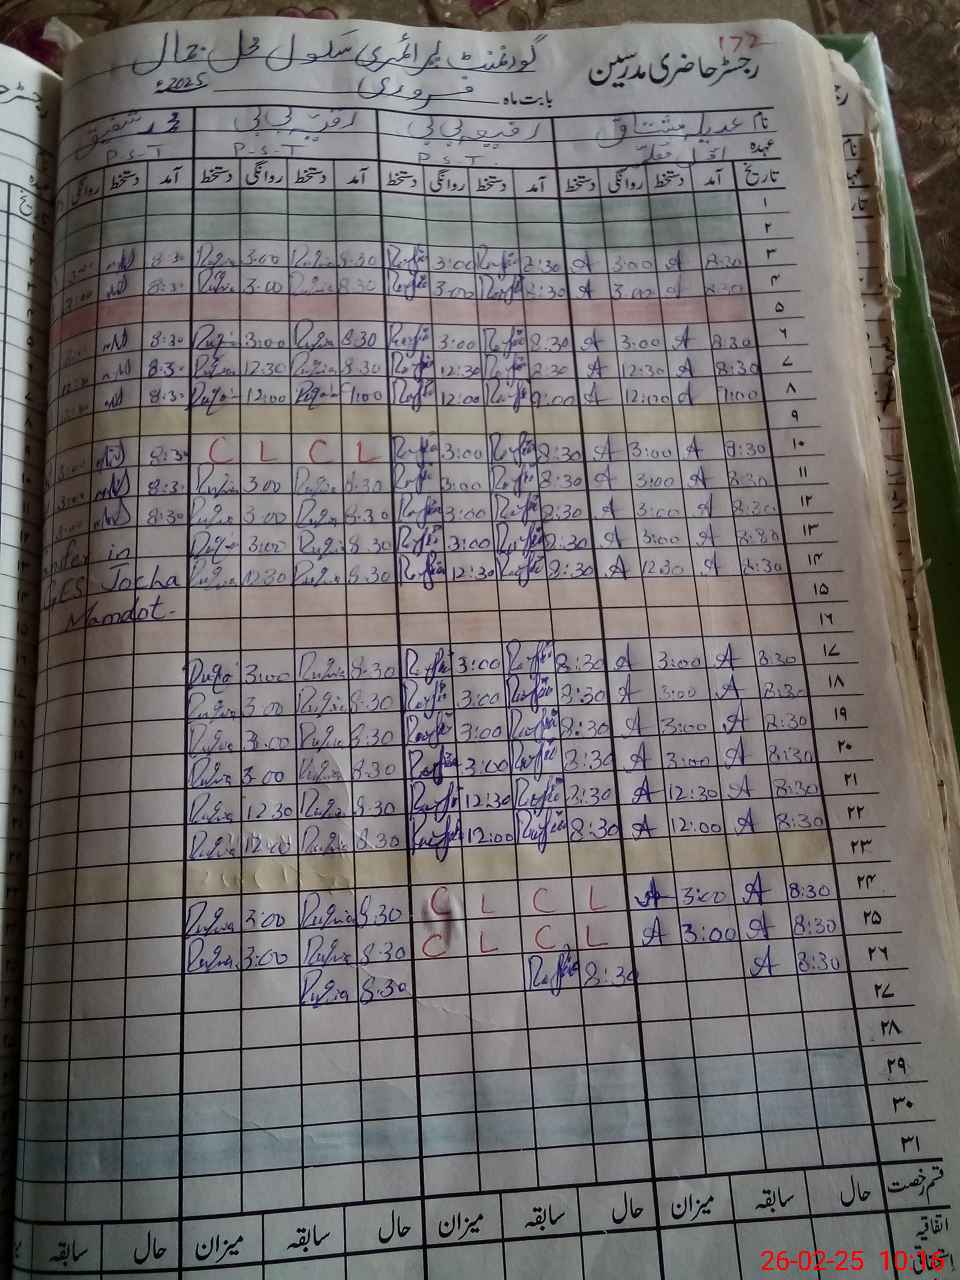 172
رجسٹر حاضری مدرسین گورنمنٹ پرائمری سکول
بابت ماہ فروری 2025ء
نام عدیل مشتاق رفیعہ بی بی رقیہ بی بی محمد شفیق
عہدہ P.S.T. P.S.T P.S.T
تاریخ آمد دستخط روانگی دستخط آمد دستخط روانگی دستخط آمد دستخط روانگی دستخط آمد دستخط روانگی
۱
۲
۳ 8:30 A 3:00 A 8:30 Rafia 3:00 Rafia 8:30 Ruqia 3:00 Ruqia 8:30 3:00
۴ 8:30 A 3:00 A 8:30 Rafia 3:00 Rafia 8:30 Ruqia 3:00 Ruqia 8:30 3:00
۵
۶ 8:30 A 3:00 A 8:30 Rafia 3:00 Rafia 8:30 Ruqia 3:00 Ruqia 8:30
۷ 8:30 A 12:30 A 8:30 Rafia 12:30 Rafia 8:30 Ruqia 12:30 Ruqia 8:30 12:30
۸ 9:00 A 12:00 A 9:00 Rafia 12:00 Rafia 9:00 Ruqia 12:00 Ruqia 8:30
۹
۱۰ 8:30 A 3:00 A 8:30 Rafia 3:00 Rafia L C L C 8:30 3:00
۱۱ 8:30 A 3:00 A 8:30 Rafia 3:00 Rafia 8:30 Ruqia 3:00 Ruqia 8:30 3:00
۱۲ 8:30 A 3:00 A 8:30 Rafia 3:00 Rafia 8:30 Ruqia 3:00 Ruqia 8:30 3:00
۱۳ 8:30 A 3:00 A 8:30 Rafia 3:00 Rafia 8:30 Ruqia 3:00 Ruqia in
۱۴ 8:30 A 12:30 A 8:30 Rafia 12:30 Rafia 8:30 Ruqia 12:30 Ruqia Jocha
۱۵ Mamdot.
۱۶
۱۷ 8:30 A 3:00 A 8:30 Rafia 3:00 Rafia 8:30 Ruqia 3:00 Ruqia
۱۸ 8:30 A 3:00 A 8:30 Rafia 3:00 Rafia 8:30 Ruqia 3:00 Ruqia
۱۹ 8:30 A 3:00 A 8:30 Rafia 3:00 Rafia 8:30 Ruqia 3:00 Ruqia
۲۰ 8:30 A 3:00 A 8:30 Rafia 3:00 Rafia 8:30 Ruqia 3:00 Ruqia
۲۱ 8:30 A 12:30 A 8:30 Rafia 12:30 Rafia 8:30 Ruqia 12:30 Ruqia
۲۲ 8:30 A 12:00 A 8:30 Rafia 12:00 Rafia 8:30 Ruqia 12:00 Ruqia
۲۳
۲۴ 8:30 A 3:00 A L C L C 8:30 Ruqia 3:00 Ruqia
۲۵ 8:30 A 3:00 A L C L C 8:30 Ruqia 3:00 Ruqia
۲۶ 8:30 A 8:30 Rafia 8:30 Ruqia
۲۷
۲۸
۲۹
۳۰
۳۱
قسم رخصت حال سابقہ میزان حال سابقہ میزان حال سابقہ
اتفاقیہ
استحقاقی
26-02-25 10:16